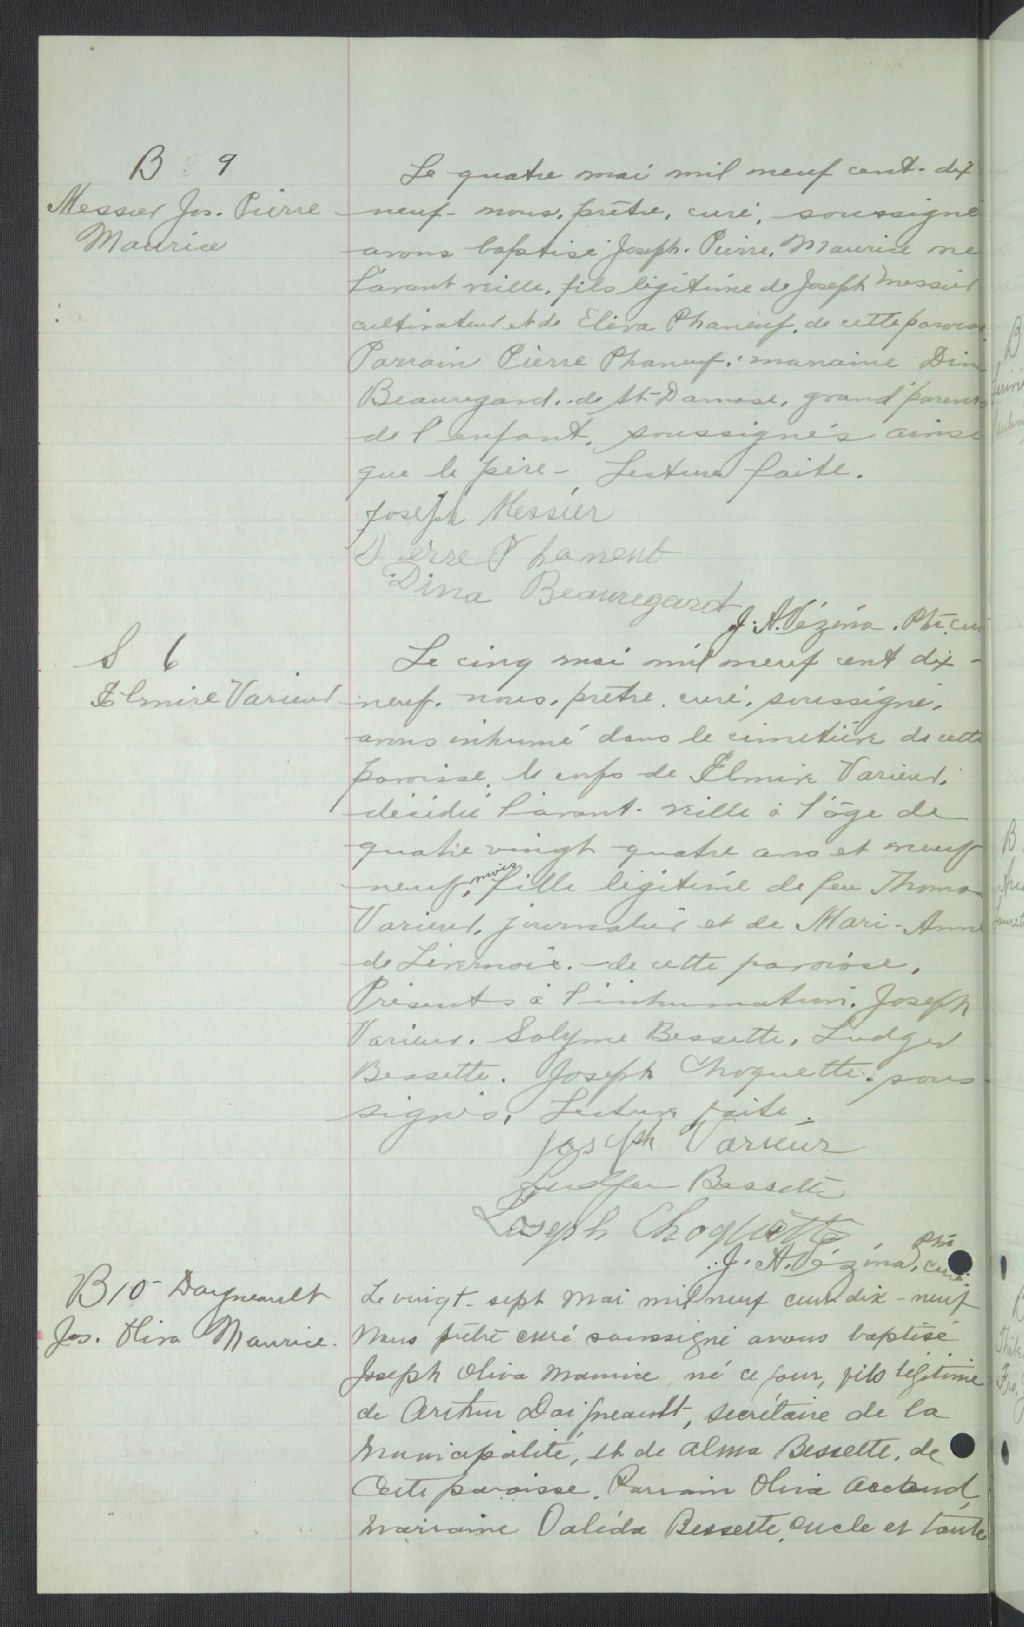 B 9
Messier Jos. Pierre
Maurice
Le quatre mai mil neuf cent. dix
neuf- nous, prêtre, curé, soussigné
avons baptisé Joseph. Pierre, Maurice né
l'avant veille, fils légitime de Joseph Messier
cultivateur et de Eléva Phaneuf, de cette paroisse
Parrain Pierre Phaneuf; marraine Dina
Beauregard, de St-Damase, grand'parents
de l'enfant, soussignés ainsi
que le père - Lecture faite.
Joseph Messier
Pierre Phaneuf
Dina Beauregard
J. A. Vézina. Ptre, curé
S 6
Elmire Varieur
Le cinq mai mil neuf cent dix-
neuf. nous, prêtre, curé, soussigné,
avons inhumé dans le cimetière de cette
paroisse, le corps de Elmire Varieur,
décédée l'avant-veille à l'âge de
quatre vingt quatre ans et neuf
neuf, mois fille légitime de feu Thomas
Varieur, journalier et de Mari-Anne
de Livernois. - de cette paroisse.
Présents à l'inhumation. Joseph
Varieur. Solyme Bessette, Ludger
Bessette. Joseph Choquette. sous-
signés, Lecture faite.
Joseph Varieur
Bessette
Joseph Choquette
J. A. Vézina, Ptre curé.
B 10 Daigneault
Jos. Oliva Maurice.
Le vingt-sept Mai mil neuf cent dix-neuf
Nous prêtre curé soussigné avons baptisé
Joseph Oliva Maurice, né ce jour, fils légitime
de Arthur Daigneault, secrétaire de la
Municipalité, et de Alma Bessette, de
Cette paroisse. Parrain Oliva
Marraine Dalida Bessette, oncle et tante